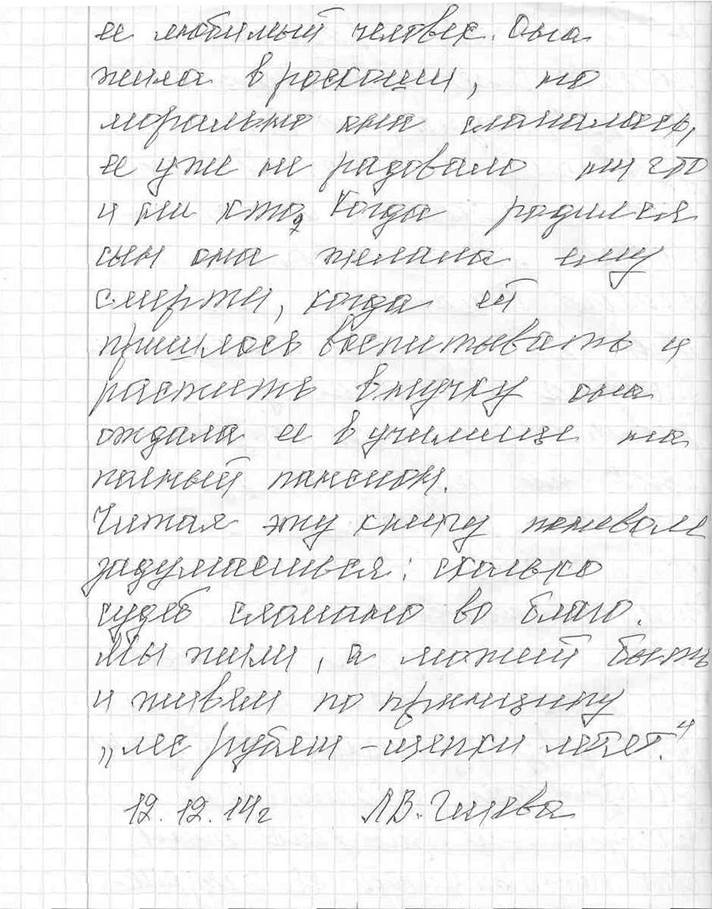 ее любимый человек. Она
жила в роскоши, но
морально она сломалась,
ее уже не радовало ни что
и ни кто, Когда родился
сын она желала ему
смерти, когда ей
пришлось воспитывать и
растить внучку она
отдала ее в училище на
полный пансион.
Читая эту книгу поневоле
задумаешься: сколько
судеб сломано во благо.
Мы жили, а может быть
и живём по принципу
„лес рубят - щепки летят."
12.12.14г Л.В.